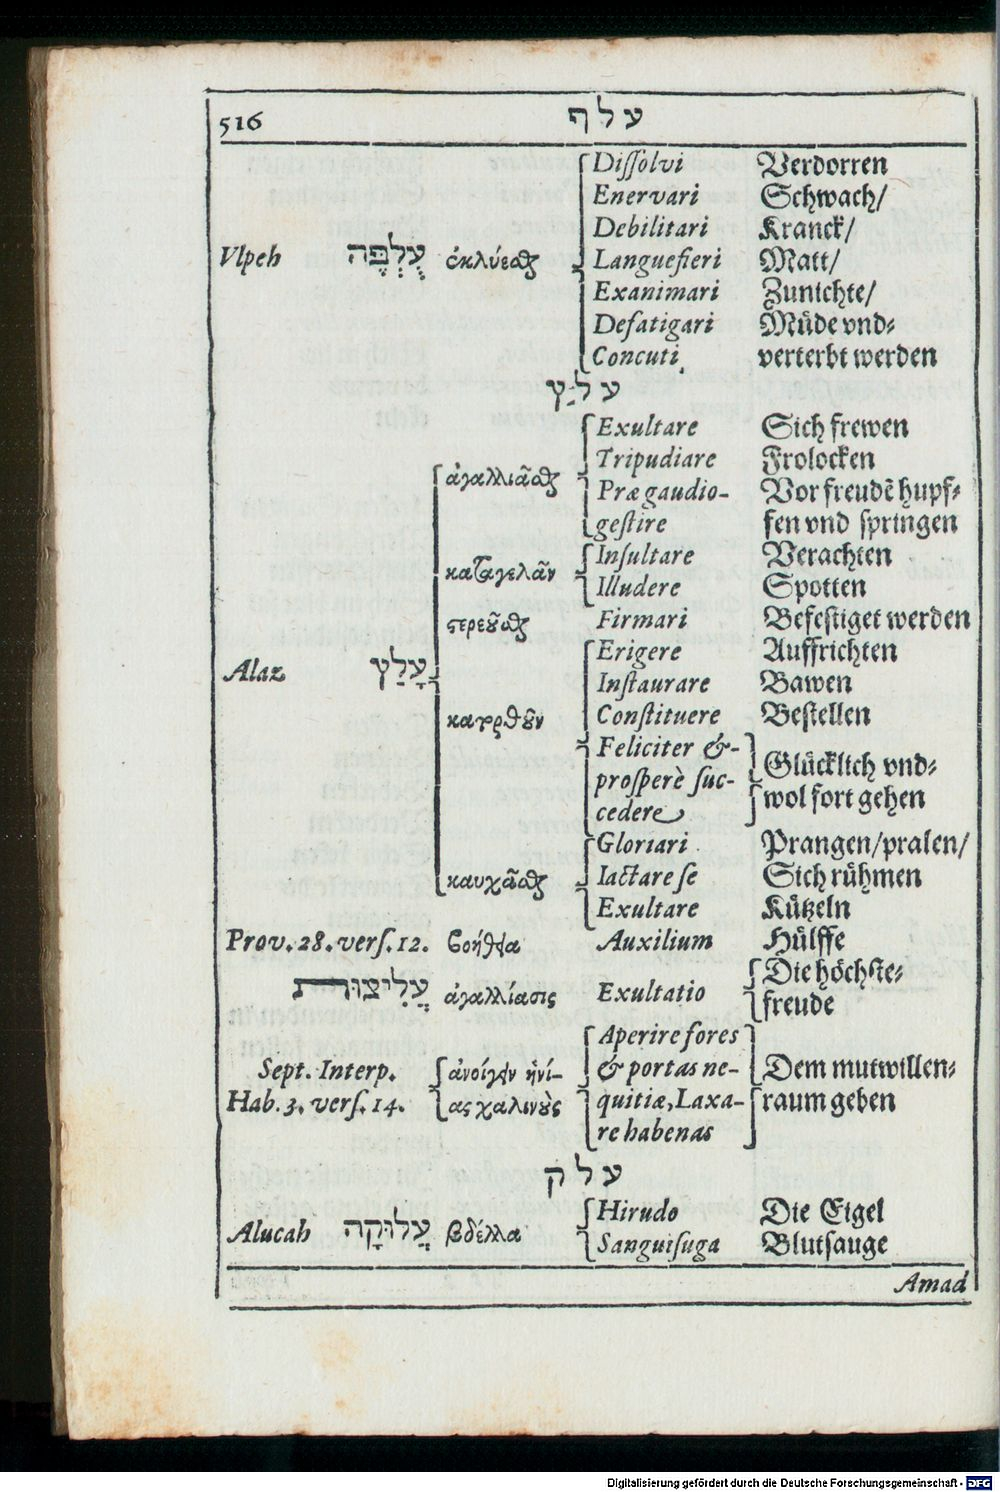 516 עלף
Dissolvi Verdorren
Enervari Schwach/
Debilitari Kranck/
Vlpeh עֻלְפֶּה ἐκλύεσθαι Languefieri Matt/
Exanimari Zunichte/
Defatigari Müde vnd-
Concuti verterbt werden
עלץ
Exultare Sich frewen
Tripudiare Frolocken
ἀγαλλιᾶσθαι
Præ gaudio- Vor freudẽ hupf-
gestire fen vnd springen
Insultare Verachten
καταγελᾶν
Illudere Spotten
στερεοῦσθαι Firmari Befestiget werden
Erigere Auffrichten
Alaz עָלַץ Instaurare Bawen
κατορθοῦν Constituere Bestellen
Feliciter &- Glücklich vnd-
prosperè suc- wol fort gehen
cedere
Gloriari Prangen/pralen/
καυχᾶσθαι Iactare se Sich rühmen
Exultare Kützeln
Prov. 28. vers. 12. βοήθεια Auxilium Hülffe
עֲלִיצוּת ἀγαλλίασις Exultatio Die höchste-
freude
Aperire fores
Sept. Interp. ἀνοίγειν ἡνί- & portas ne- Dem mutwillen-
Hab. 3. vers. 14. ας χαλινοὺς quitiæ, Laxa- raum geben
re habenas
עלק
Hirudo Die Eigel
Alucah עֲלוּקָה βδέλλα Sanguisuga Blutsauge
Amad
Digitalisierung gefördert durch die Deutsche Forschungsgemeinschaft - DFG